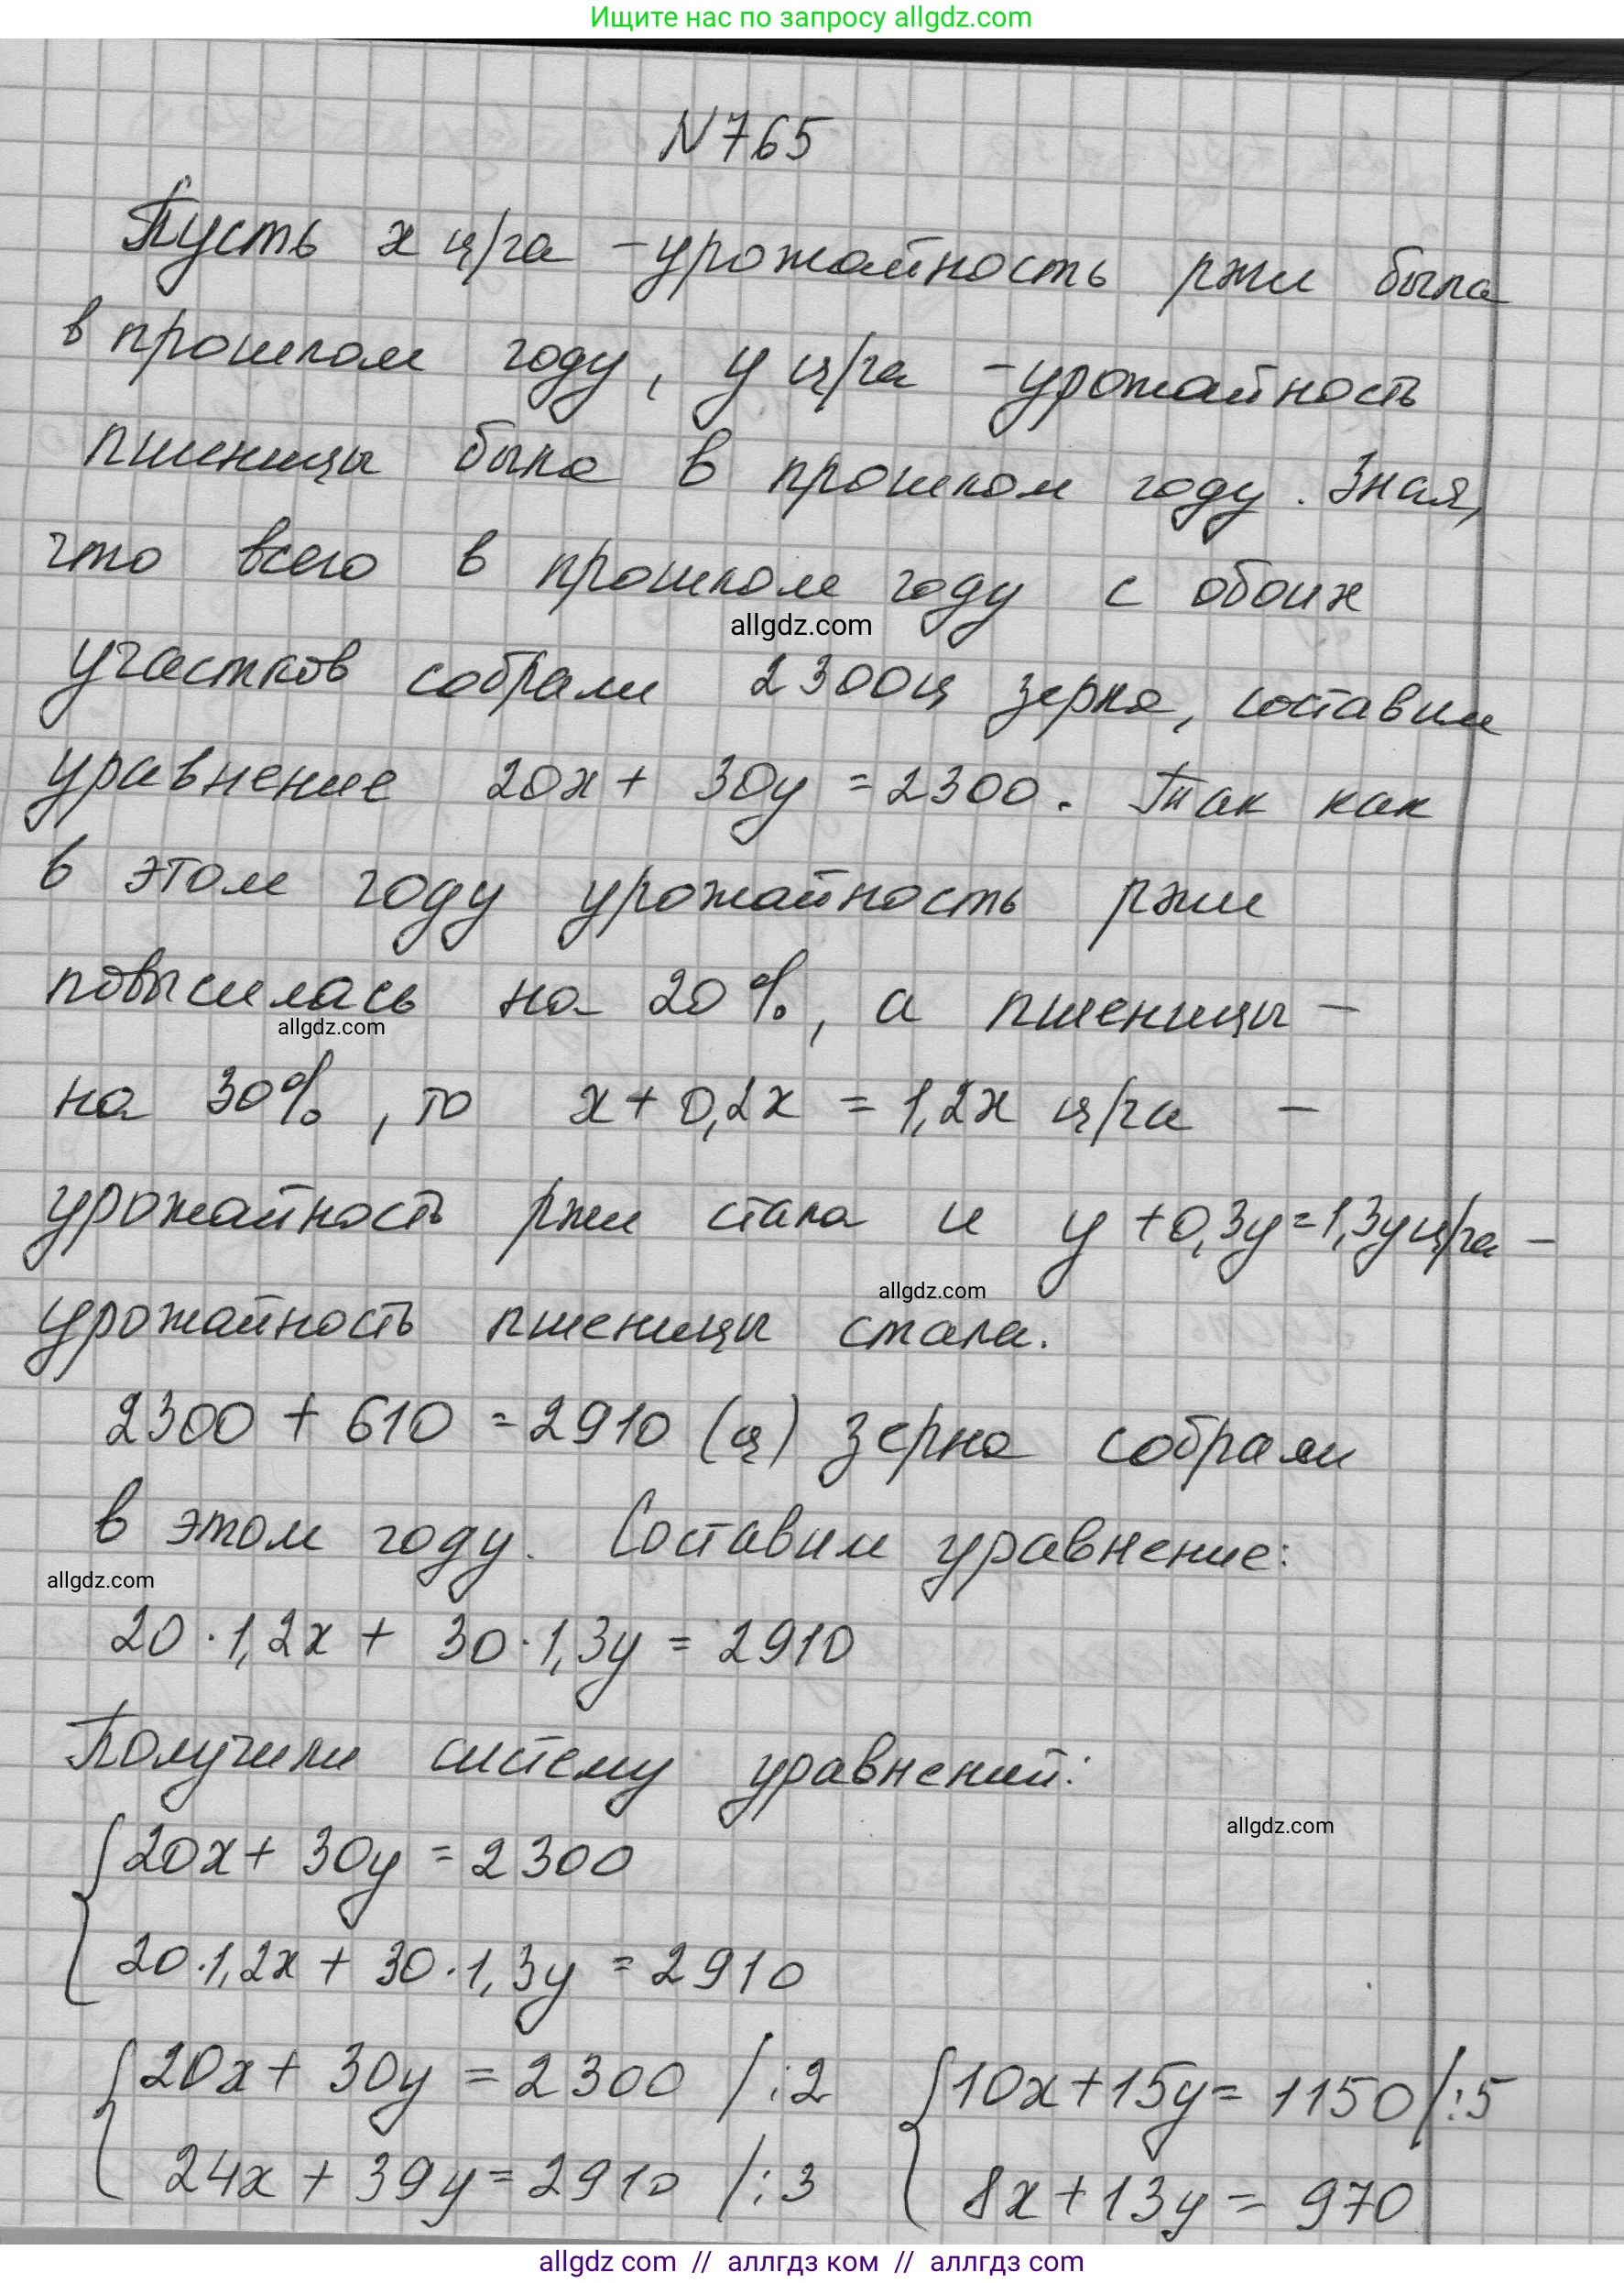 Ищите нас по запросу allgdz.com
N765
Пусть x ц/га - урожайность ржи была
в прошлом году, y ц/га - урожайность
пшеницы была в прошлом году. Зная,
что всего в прошлом году с обоих
allgdz.com
участков собрали 2300ц зерна, составим
уравнение 20x + 30y = 2300. Так как
в этом году урожайность ржи
повысилась на 20%, а пшеницы -
allgdz.com
на 30%, то x + 0,2x = 1,2x ц/га -
урожайность ржи стала и y + 0,3y = 1,3y ц/га -
allgdz.com
урожайность пшеницы стала.
2300 + 610 = 2910 (ц) зерна собрали
в этом году. Составим уравнение:
allgdz.com
20 · 1,2x + 30 · 1,3y = 2910
Получили систему уравнений:
allgdz.com
{ 20x + 30y = 2300
20 · 1,2x + 30 · 1,3y = 2910
{ 20x + 30y = 2300 /:2 { 10x + 15y = 1150 /:5
24x + 39y = 2910 /:3 8x + 13y = 970
allgdz com // аллгдз ком // аллгтdз com